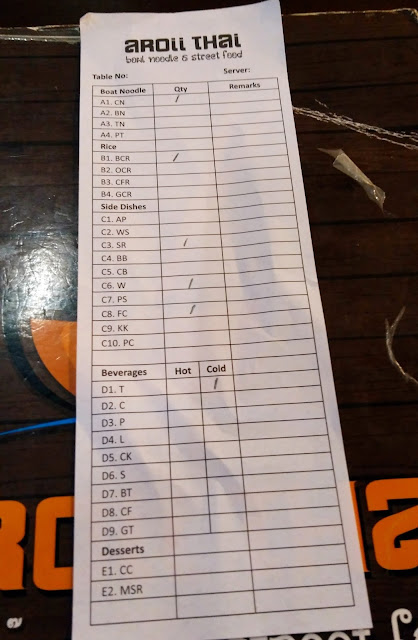 AROII THAI
boat noodle & street food
Table No: Server:
Boat Noodle Qty Remarks
A1. CN /
A2. BN
A3. TN
A4. PT
Rice
B1. BCR /
B2. OCR
B3. CFR
B4. GCR
Side Dishes
C1. AP
C2. WS
C3. SR /
C4. BB
C5. CB
C6. W /
C7. PS
C8. FC /
C9. KK
C10. PC
Beverages Hot Cold
D1. T /
D2. C
D3. P
D4. L
D5. CK
D6. S
D7. BT
D8. CF
D9. GT
Desserts
E1. CC
E2. MSR